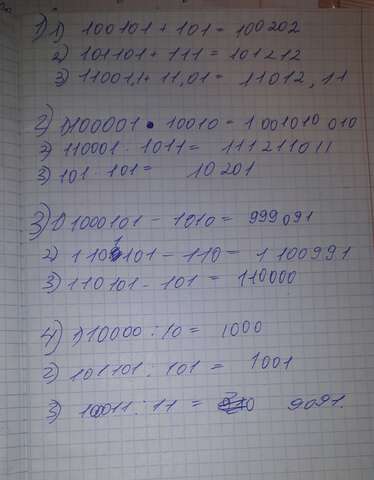 1) 1) 100101 + 101 = 100202
2) 101101 + 111 = 101212
3) 11001,1 + 11,01 = 11012,11
2) 1) 100001 · 10010 = 1001010010
2) 110001 · 1011 = 111211011
3) 101 · 101 = 10201
3) 1) 1000101 - 1010 = 999091
2) 1101101 - 110 = 1100991
3) 110101 - 101 = 110000
4) 1) 10000 : 10 = 1000
2) 101101 : 101 = 1001
3) 10011 : 11 = 9091.